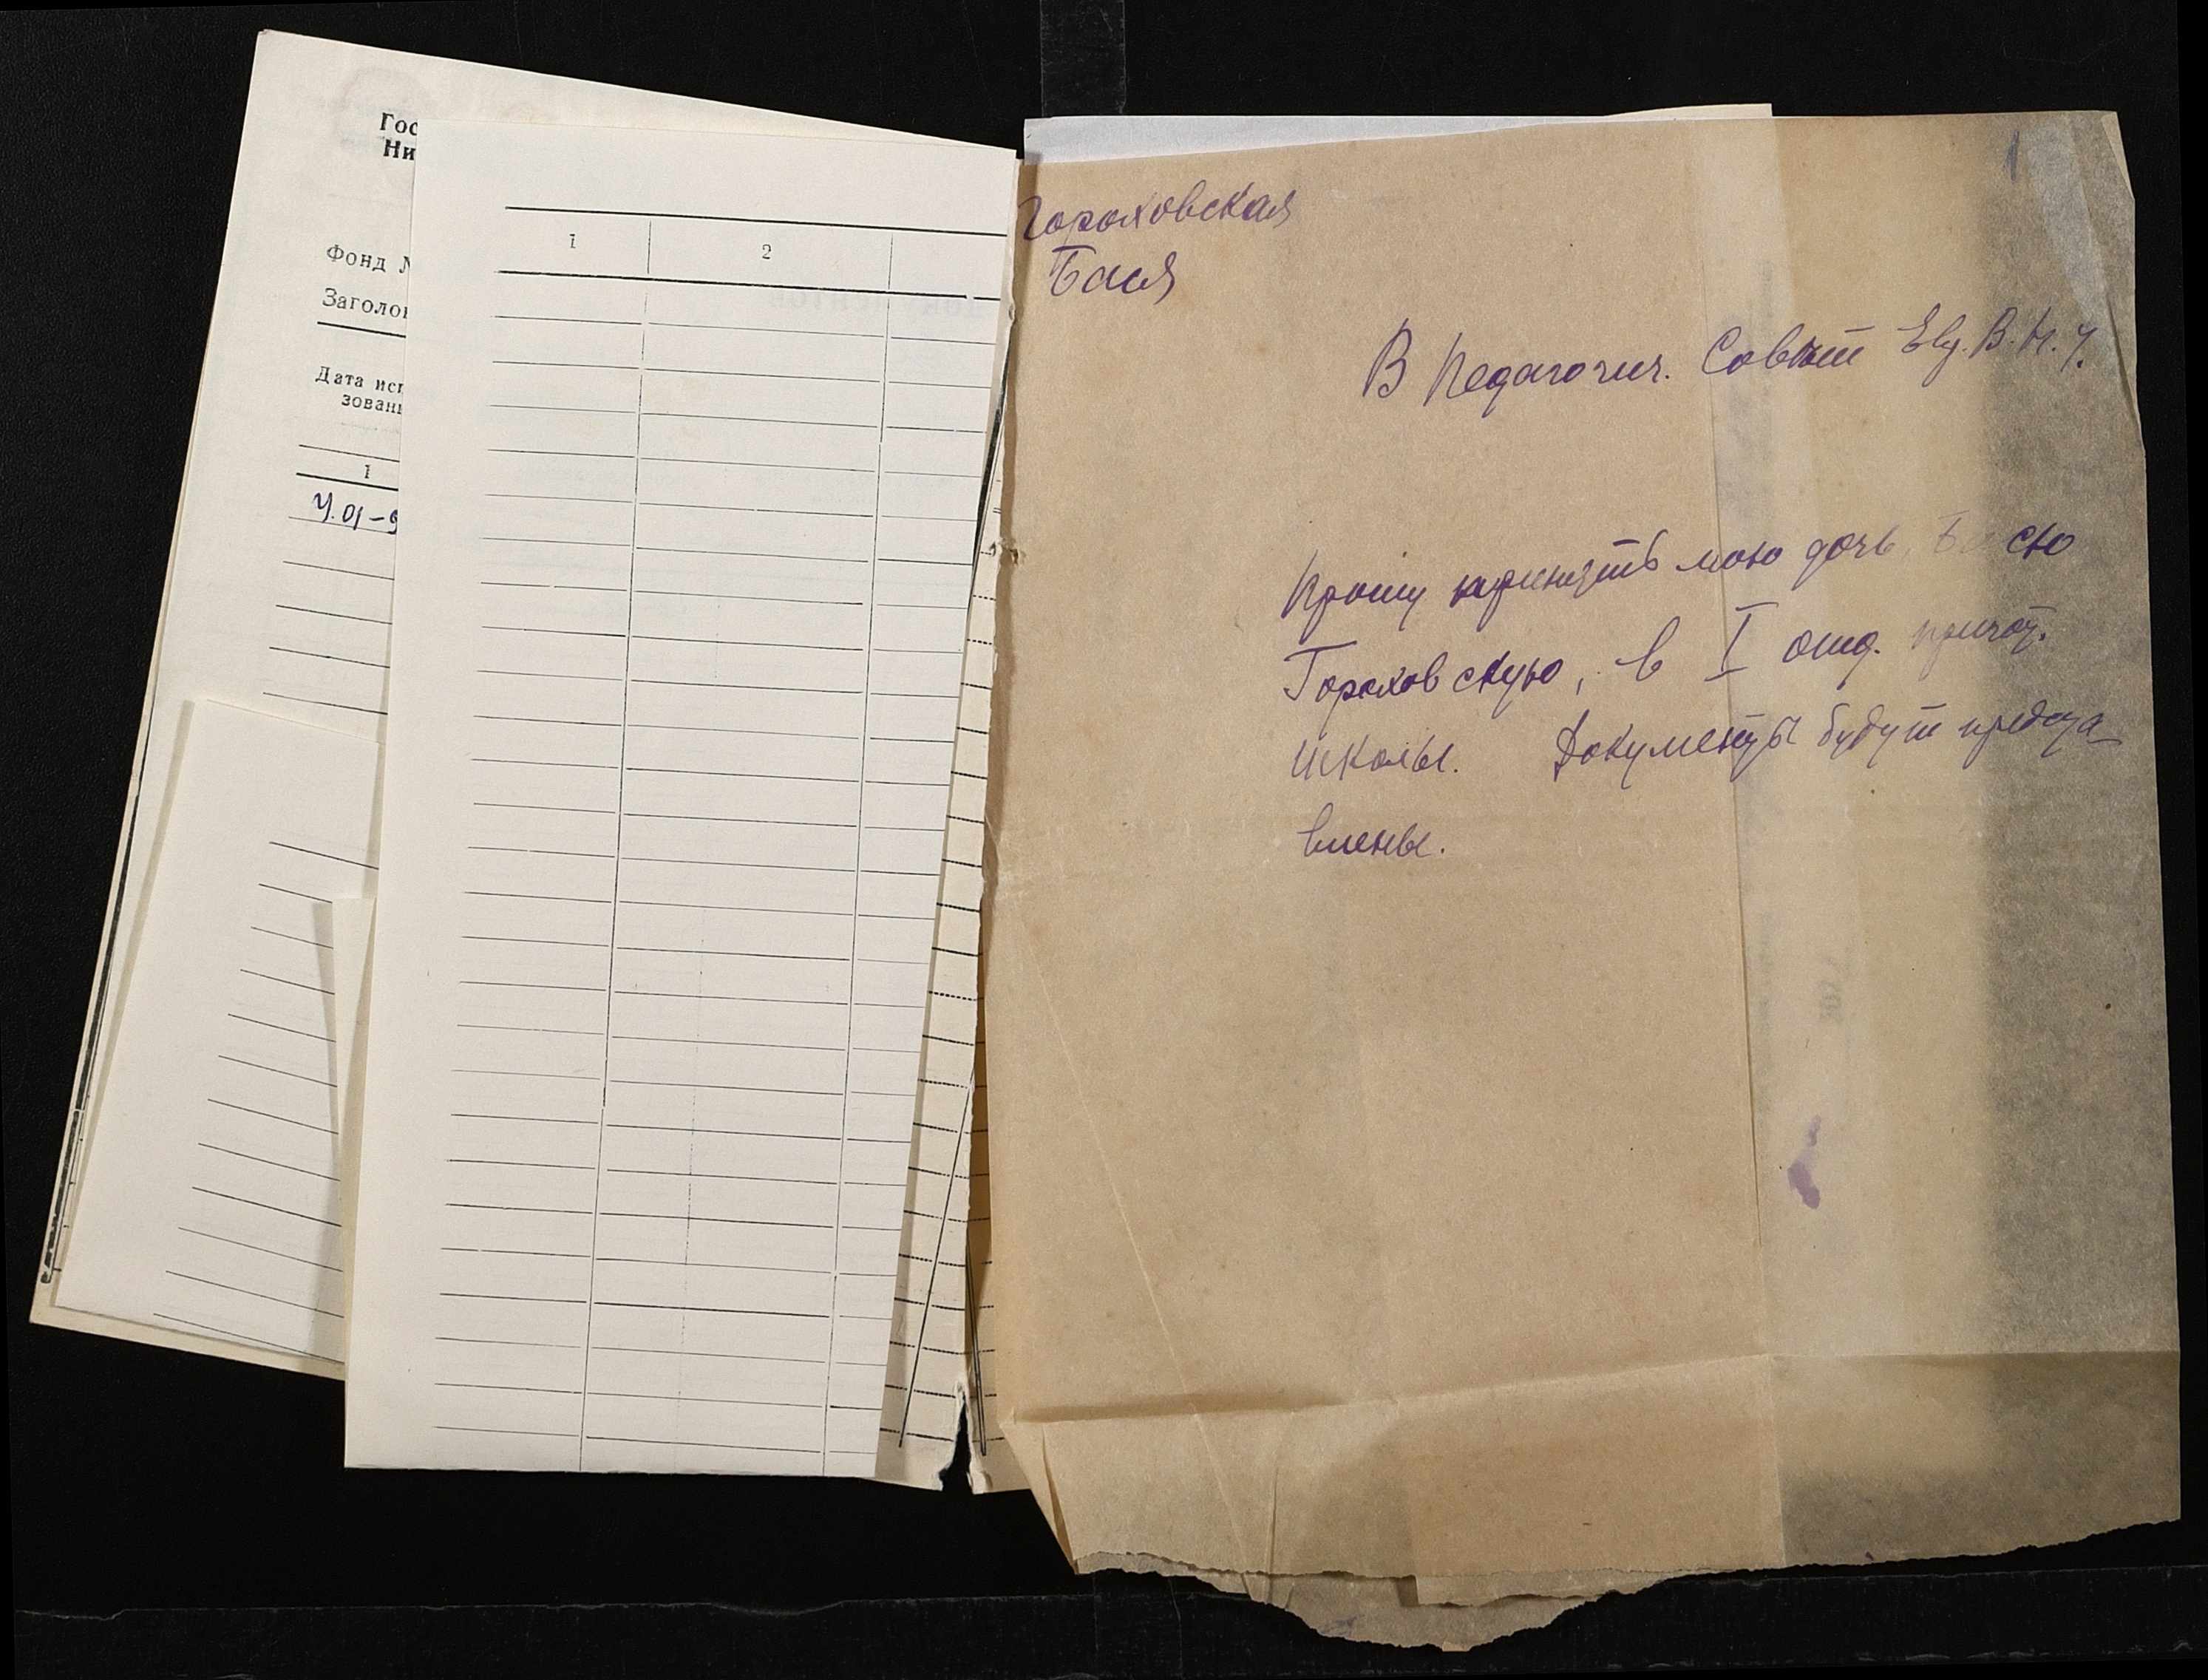 Гос
Ни
Фонд №
Заголо
Дата исп
зовани
1
У.01-9
1 2
1
Гороховская
Бася
В Педагогич. Совѣт Елу. В. Н. У.
Прошу принять мою дочь, Басю
Гороховскую, в I отд. пригот.
школы. Документы будут предста
влены.